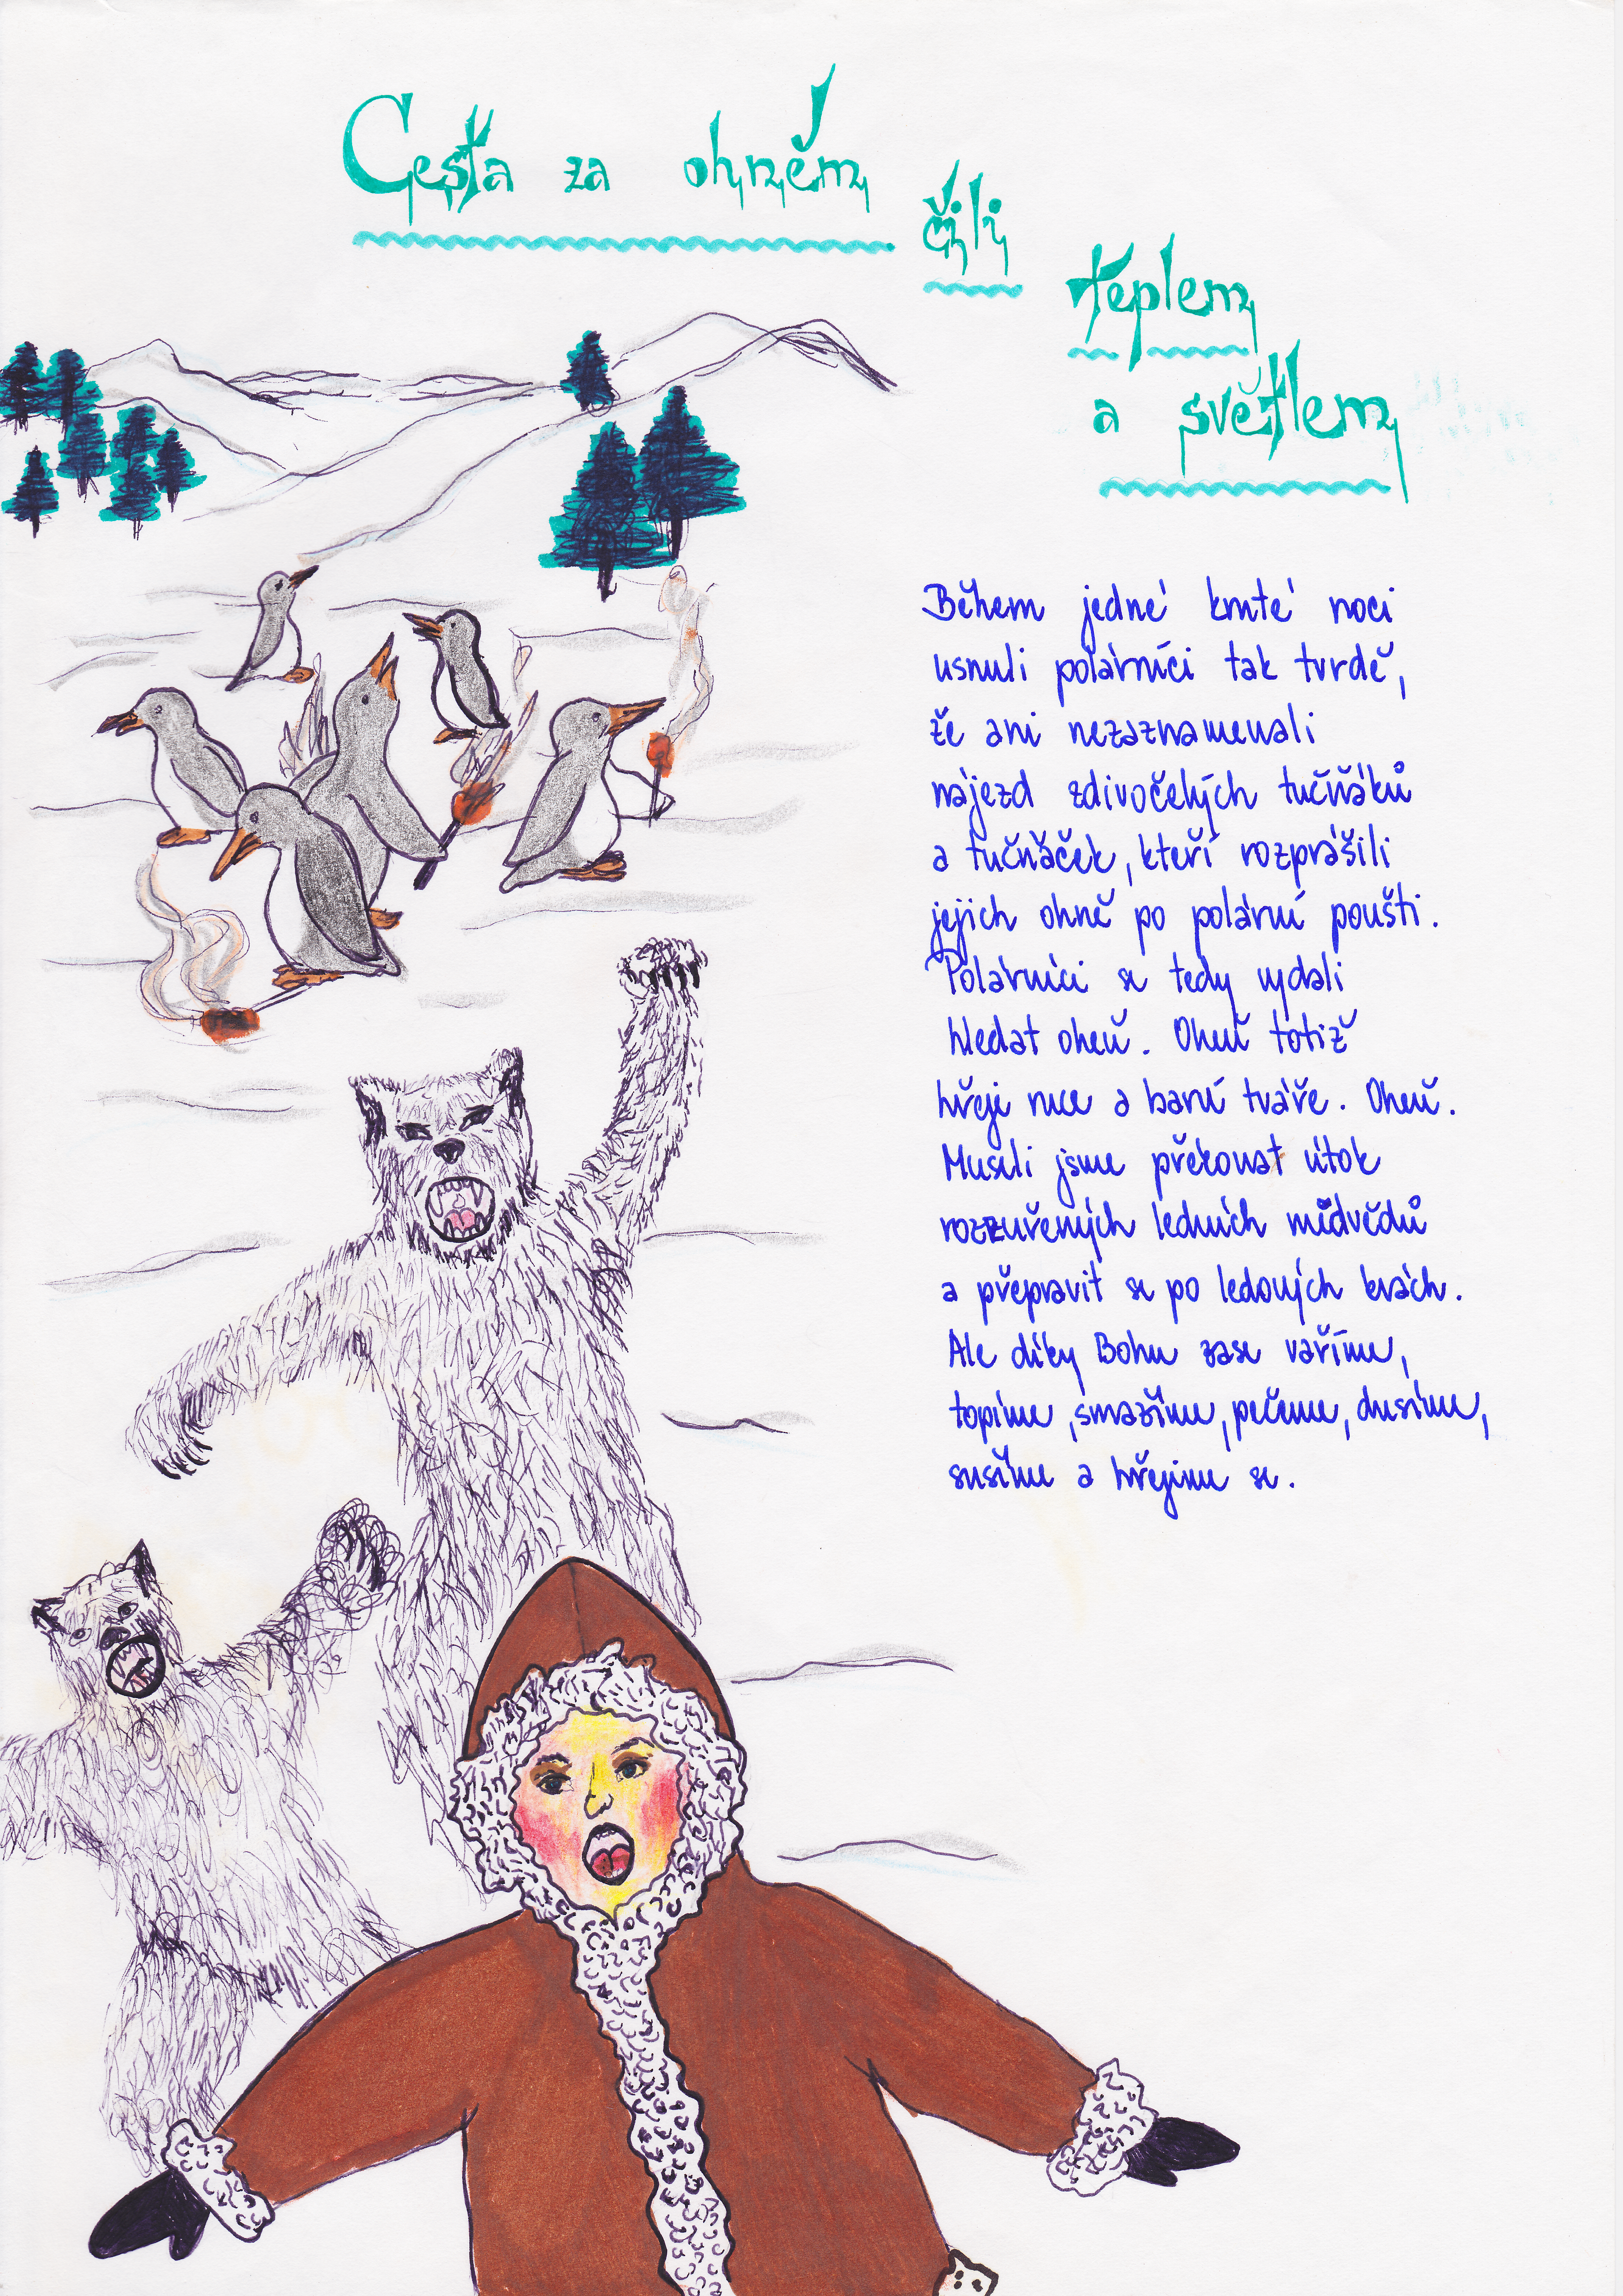 Cesta za ohněm
čili
teplem
a světlem
Během jedné kruté noci
usnuli polárníci tak tvrdě,
že ani nezaznamenali
nájezd zdivočelých tučňáků
a tučňaček, kteří rozprášili
jejich ohně po polární poušti.
Polárníci se tedy vydali
hledat oheň. Oheň totiž
hřeje ruce a barví tváře. Oheň.
Museli jsme překonat útok
rozzuřených ledních mědvědů
a přepravit se po ledových krách.
Ale díky Bohu zase vaříme,
topíme, smažíme, pečeme, dusíme,
sušíme a hřejeme se.